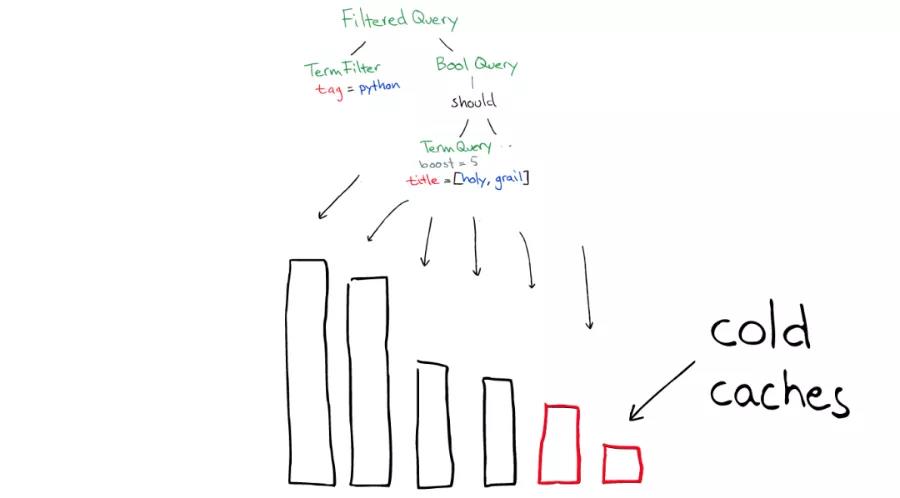 Filtered Query
TermFilter
tag = python
Bool Query
should
TermQuery ..
boost = 5
title = [holy, grail]
cold
caches